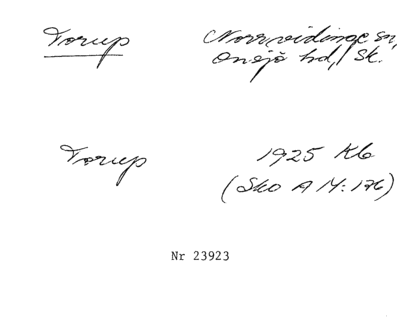 Torup Norrvidinge sn,
Onsjö hd, Sk.
Torup 1925 Kb
(Sko A 14:176)
Nr 23923